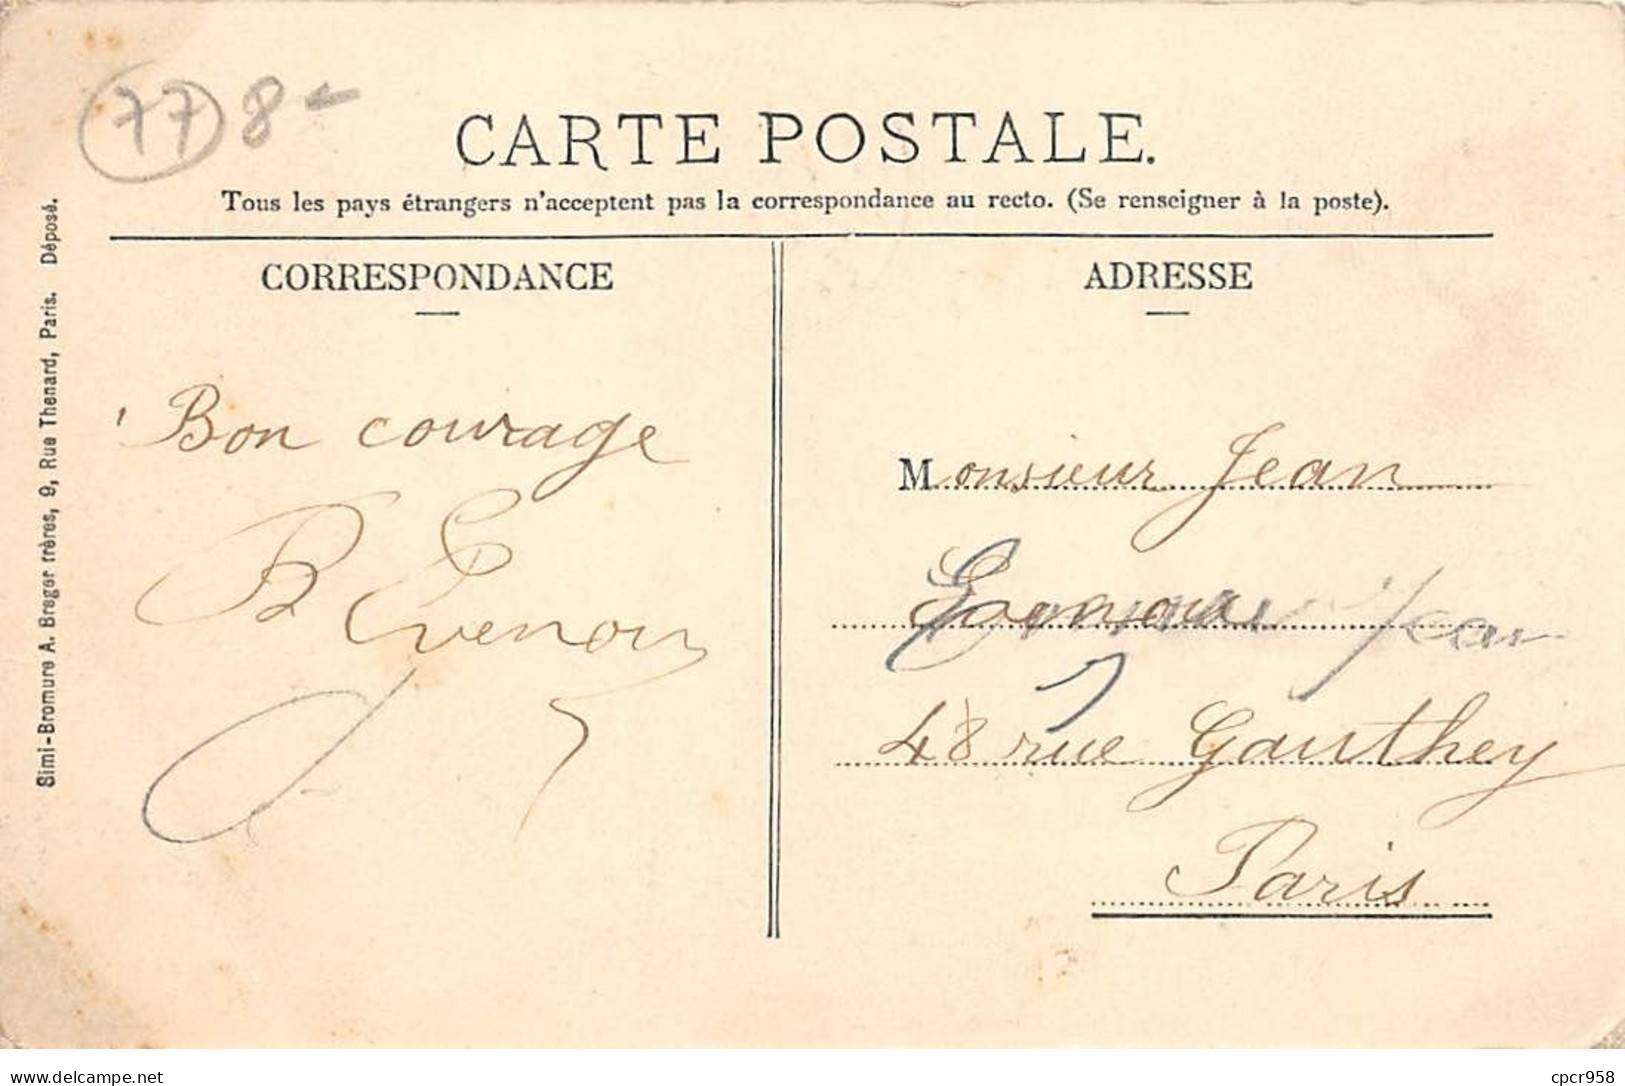 77 8-
CARTE POSTALE.
Tous les pays étrangers n'acceptent pas la correspondance au recto. (Se renseigner à la poste).
Simi-Bromure A. Breger frères, 9, Rue Thenard, Paris. Déposé.
CORRESPONDANCE
Bon courage
ADRESSE
Monsieur Jean
Jean
48 rue Gauthey
Paris
cpcr958